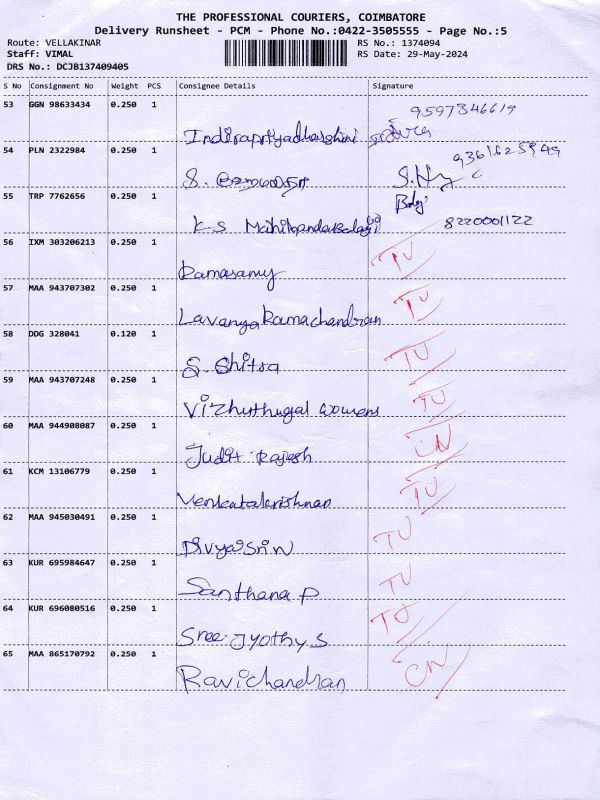 THE PROFESSIONAL COURIERS, COIMBATORE
Delivery Runsheet - PCM - Phone No.:0422-3505555 - Page No.:5
Route: VELLAKINAR RS No.: 1374094
Staff: VIMAL RS Date: 29-May-2024
DRS No.: DCJB137409405
S No Consignment No Weight PCS Consignee Details Signature
53 GGN 98633434 0.250 1 9597346619
Indirapriyadharshini
54 PLN 2322984 0.250 1 9361625949
S.
55 TRP 7762656 0.250 1
K.S Mahibandabalagi 8220001122
56 IXM 303206213 0.250 1 TU
Ramasamy
57 MAA 943707302 0.250 1 TU
Lavanya Ramachandran
58 DDG 328041 0.120 1 TU
S. Chitra
59 MAA 943707248 0.250 1 TU
Vizhuthugal womens
60 MAA 944908087 0.250 1 CN
Judit Rajesh
61 KCM 13106779 0.250 1 TU
Venkatakrishnan
62 MAA 945030491 0.250 1 TU
Divyasri N
63 KUR 695984647 0.250 1 TU
Santhana P
64 KUR 696080516 0.250 1 TU
Sree Jyothy S
65 MAA 865170792 0.250 1 CN
Ravichandran